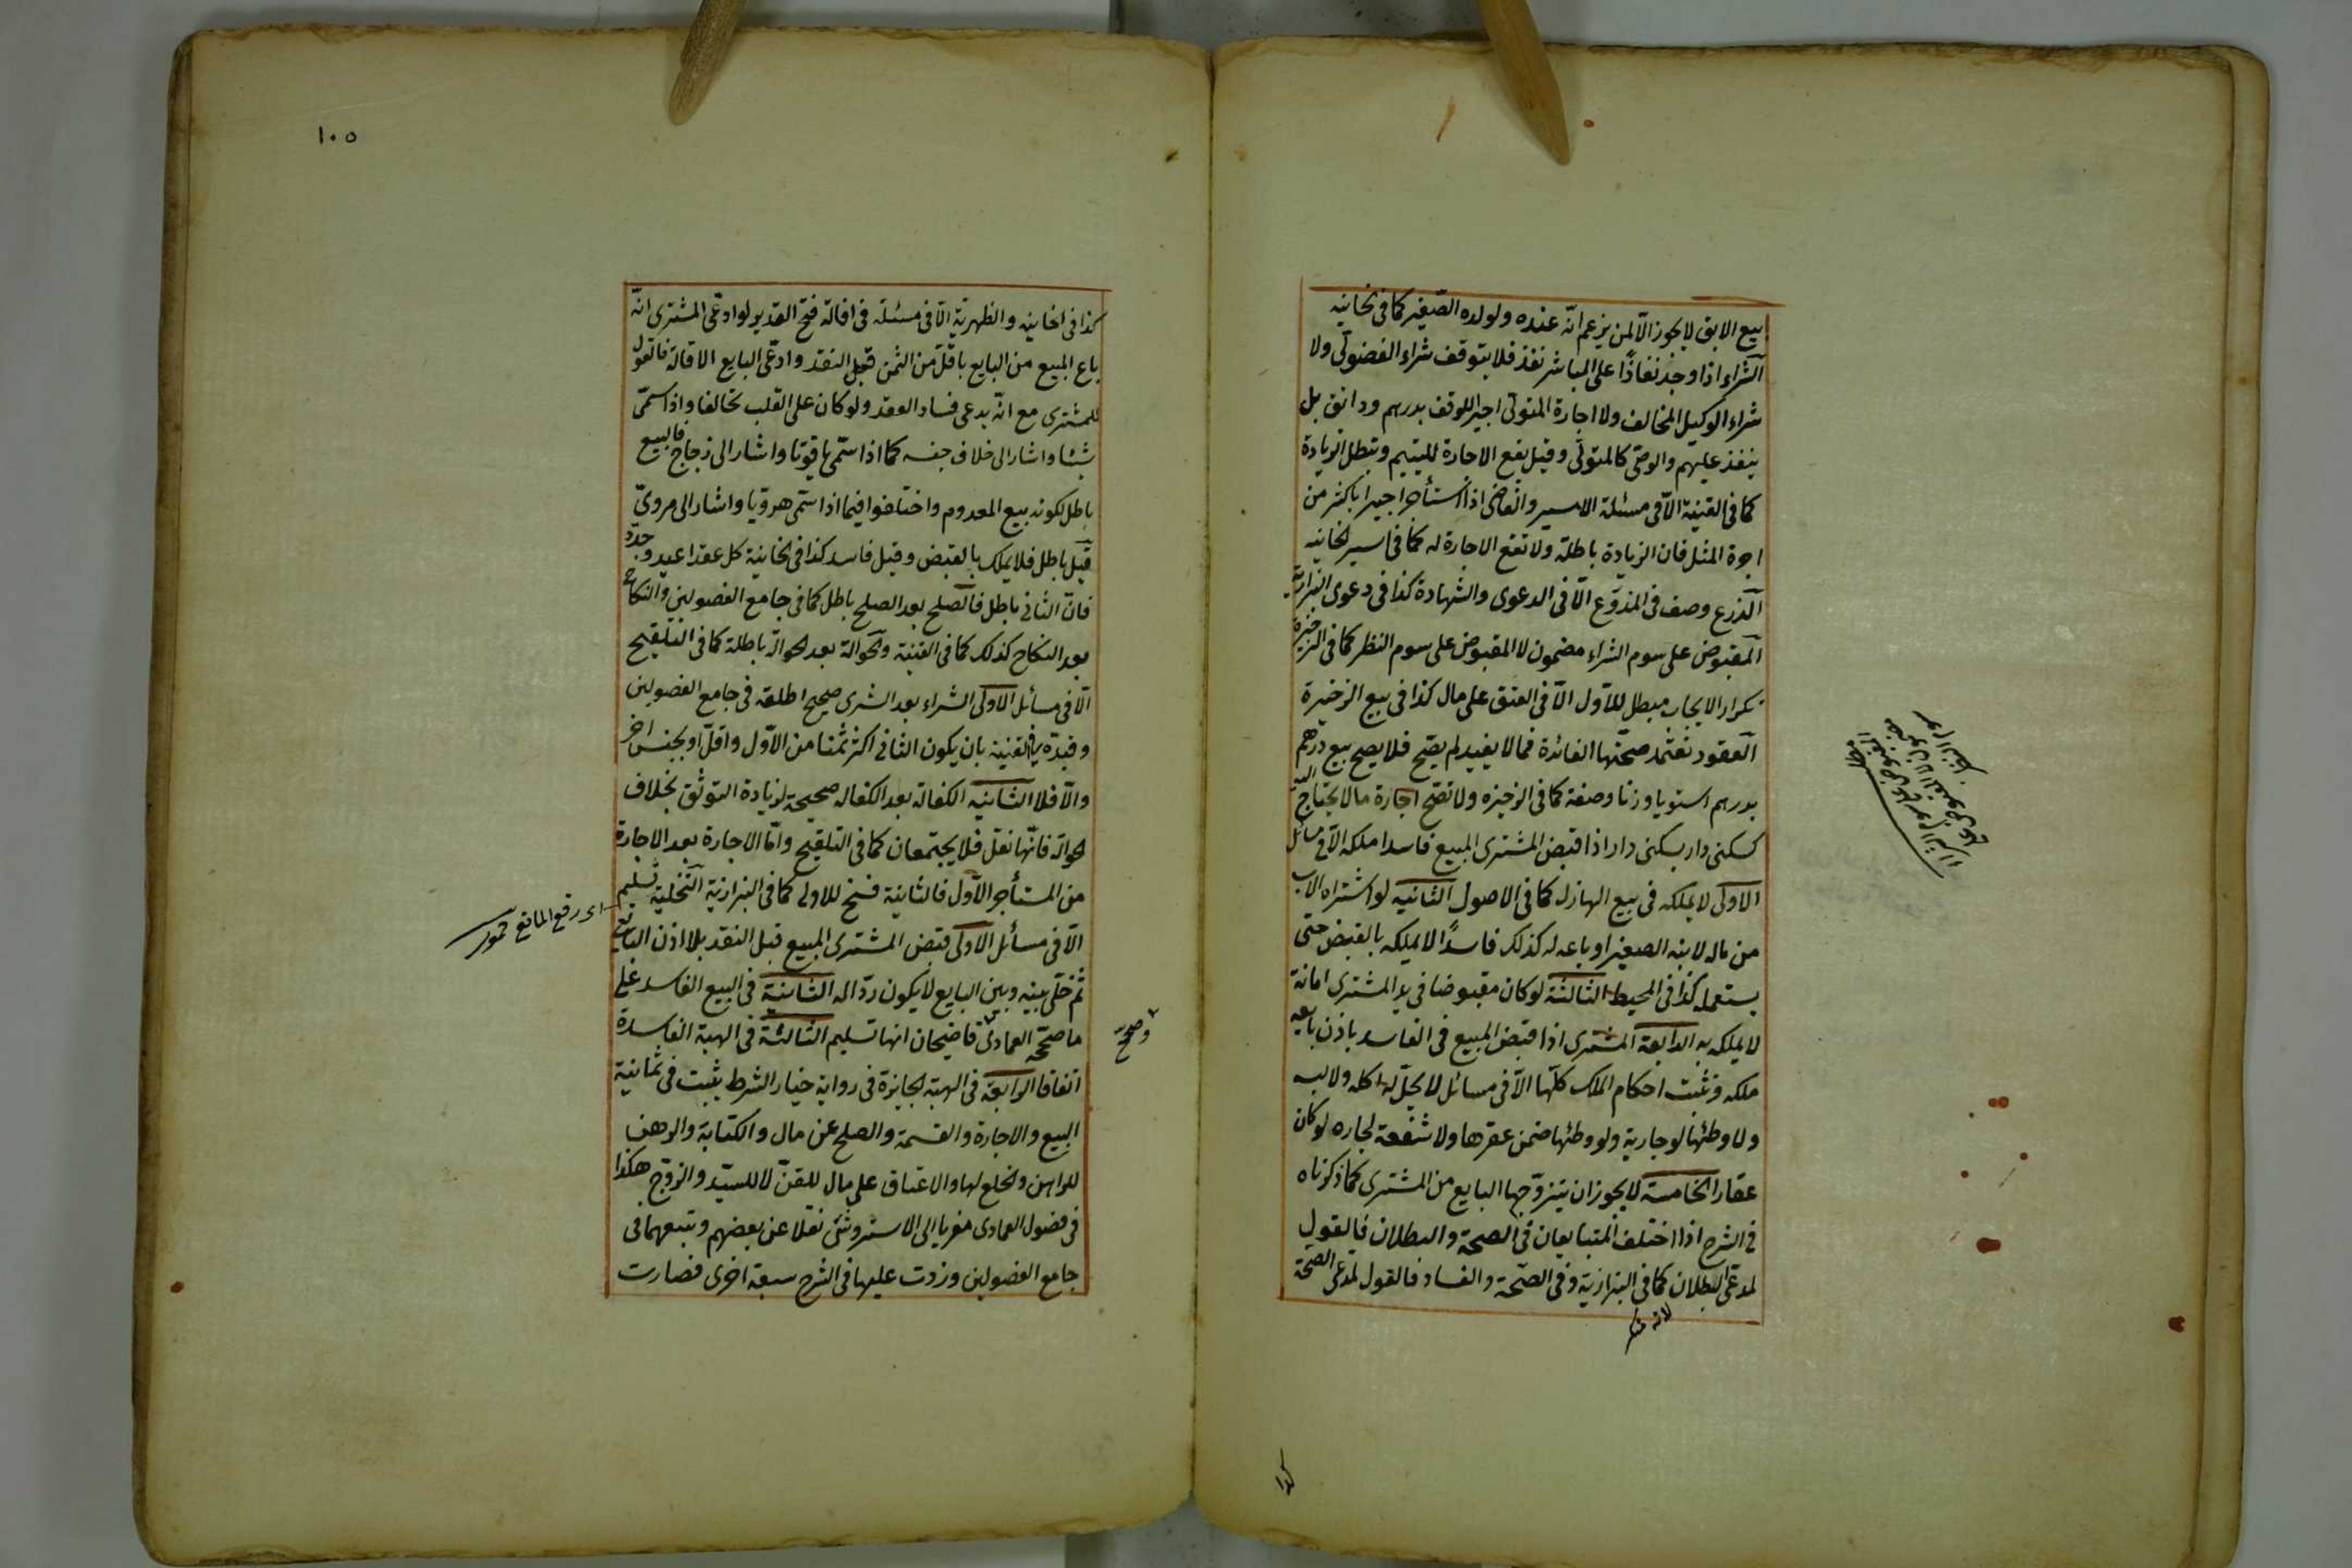 بيع الابق لا يجوز الّا لمن يزعم انّه عنده ولولده الصّغير كما في الخانيه
الشراء اذا وجد نفاذًا على المباشر نفذ فلا يتوقف شراء الفضولي ولا
شراء الوكيل المخالف ولا اجارة المتولّي اجير اللوقف بدرهم ودانق بل
ينفذ عليهم والوصّي كالمتولّي وقيل يقع الاجارة لليتيم وتبطل الزيادة
كما في القنية الّا في مسئلة الامير والقاضي اذا استأجر اجيرا باكثر من
اجرة المثل فان الزيادة باطلة ولا تقع الاجارة له كما في سير الخانيه
الذرع وصف في المذرّع الّا في الدعوى والشهادة كذا في دعوى البزازية
المقبوض على سوم الشراء مضمون لا المقبوض على سوم النظر كما في الذخيرة
تكرار الايجاب مبطل للاوّل الّا في العتق على مال كذا في بيع الذخيرة
العقود تعتمد صحّتها الفائدة فما لا يفيد لم يصحّ فلا يصح بيع درهم
بدرهم استويا وزنا وصفة كما في الذخيره ولا تصّح اجارة ما لا يحتاج اليه
كسكنى دار بسكنى دار اذا قبض المشترى المبيع فاسدا ملكه الّا في مسائل
الاولى لا يملكه في بيع الهازل كما في الاصول الثانيه لو اشتراه الاب
من ماله لابنه الصغير او باعه له كذلك فاسدًا لا يملكه بالقبض حتى
يستعمله كذا في المحيط الثالثة لو كان مقبوضا في يد المشترى امانة
لا يملكه به الرابعة المشترى اذا قبض المبيع في الفاسد باذن بايعه
ملكه وتثبت احكام الملك كلّها الّا في مسائل لا يحلّ له اكله ولا لبسه
ولا وطئها لو جارية ولو وطئها ضمن عقرها ولا شفعة لجاره لو كان
عقارا الخامسة لا يجوز ان يتزوّجها البايع من المشترى كما ذكرناه
في الشرح اذا اختلف المتبايعان في الصحة والبطلان فالقول
لمدّعى البطلان كما في البزازية وفي الصّحة والفساد فالقول لمدعى الصحة
لانه منكر
كذا
١٠٥
كذا في الخانيه والظهيريّة الّا في مسئلة في اقالة فتح القدير لو ادعّى المشترى انّه
باع المبيع من البايع باقلّ من الثمن قبل النقد وادّعى البايع الاقالة فالقول
للمشترى مع انّه يدعى فساد العقد ولو كان على القلب تحالفا واذا سمّى
شيئا واشار الى خلاف جنسه كما اذا سمّى ياقوتا واشار الى زجاج فالبيع
باطل لكونه بيع المعدوم واختلفوا فيما اذا سمّى هرويّا واشار الى مرويّ
قيل باطل فلا يملك بالقبض وقيل فاسد كذا في الخانية كل عقد اعيد وجدّد
فانّ الثاني باطل فالصلح بعد الصلح باطل كما في جامع الفصولين والنكاح
بعد النكاح كذلك كما في القنية والحوالة بعد الحوالة باطلة كما في التلقيح
الّا في مسائل الاولى الشراء بعد الشرى صحيح اطلقه في جامع الفصولين
وقيدّه في القنية بان يكون الثاني اكثر ثمنا من الاوّل واقلّ او بجنس اخر
والّا فلا الثانيه الكفالة بعد الكفاله صحيحة لزيادة التوثّق بخلاف
الحوالة فانّها نقل فلا يجتمعان كما في التلقيح وامّا الاجارة بعد الاجارة
من المستأجر الاوّل فالثانية فسخ للاولى كما في البزازية التخلية تسليم
اى رفع المانع حموى
الّا في مسائل الاولى قبض المشترى المبيع قبل النقد بلا اذن البايع
ثمّ خلّى بينه وبين البايع لا يكون ردّا له الثانية في البيع الفاسد على
ما صحّحه العمادىّ قاضيخان انها تسليم الثالثة في الهبة الفاسدة
وصحّح
اتفاقا الرابعة في الهبة الجايزة في رواية خيار الشرط يثبت في ثمانية
البيع والاجارة والقسمة والصلح عن مال والكتابة والرهن
للراهن والخلع لها والاعتاق على مال للقنّ لا للسيّد والزوّج هكذا
في فصول العمادى معزيا الى الاستروشنى نقلا عن بعضهم وتبعهما في
جامع الفصولين وزدت عليها في الشرح سبعة اخرى فصارت